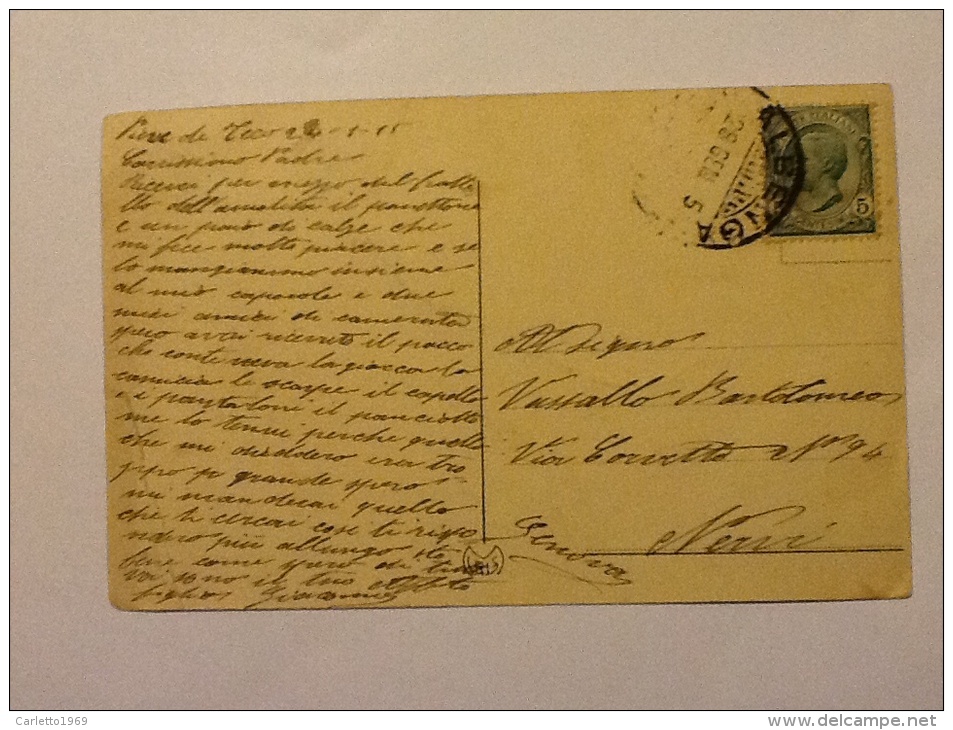 Pieve di Teco 24-1-15
Carissimo Padre
Ricevei per mezzo del frate
llo dell'amalia il panettone
e un paio di calze che
mi fece molto piacere e se
lo mangiammo insieme
al mio caporale e due
miei amici di camerata
spero avrai ricevuto il pacco
che conteneva la giacca la
camicia le scarpe il capello
e i pantaloni il panciotto
me lo tenni perche quello
che mi diedero era tro
ppo grande spero
mi manderai quello
che ti cercai così ti rispo
nderò più allungo sto
bene come spero di
voi sono il tuo
figlio Giacomo
ALBENGA
28 GEN 15
5
Al Signor
Vassallo Bartolomeo
Via Corvetto N° 94
Nervi
Genova
Carletto1969
http://www.delcampe.net